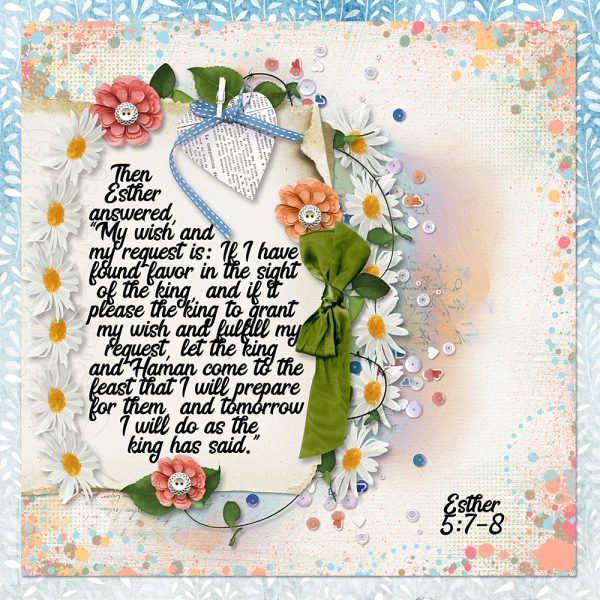 Then
Esther
answered,
"My wish and
my request is: If I have
found favor in the sight
of the king, and if it
please the king to grant
my wish and fulfill my
request, let the king
and Haman come to the
feast that I will prepare
for them, and tomorrow
I will do as the
king has said."
Esther
5:7-8